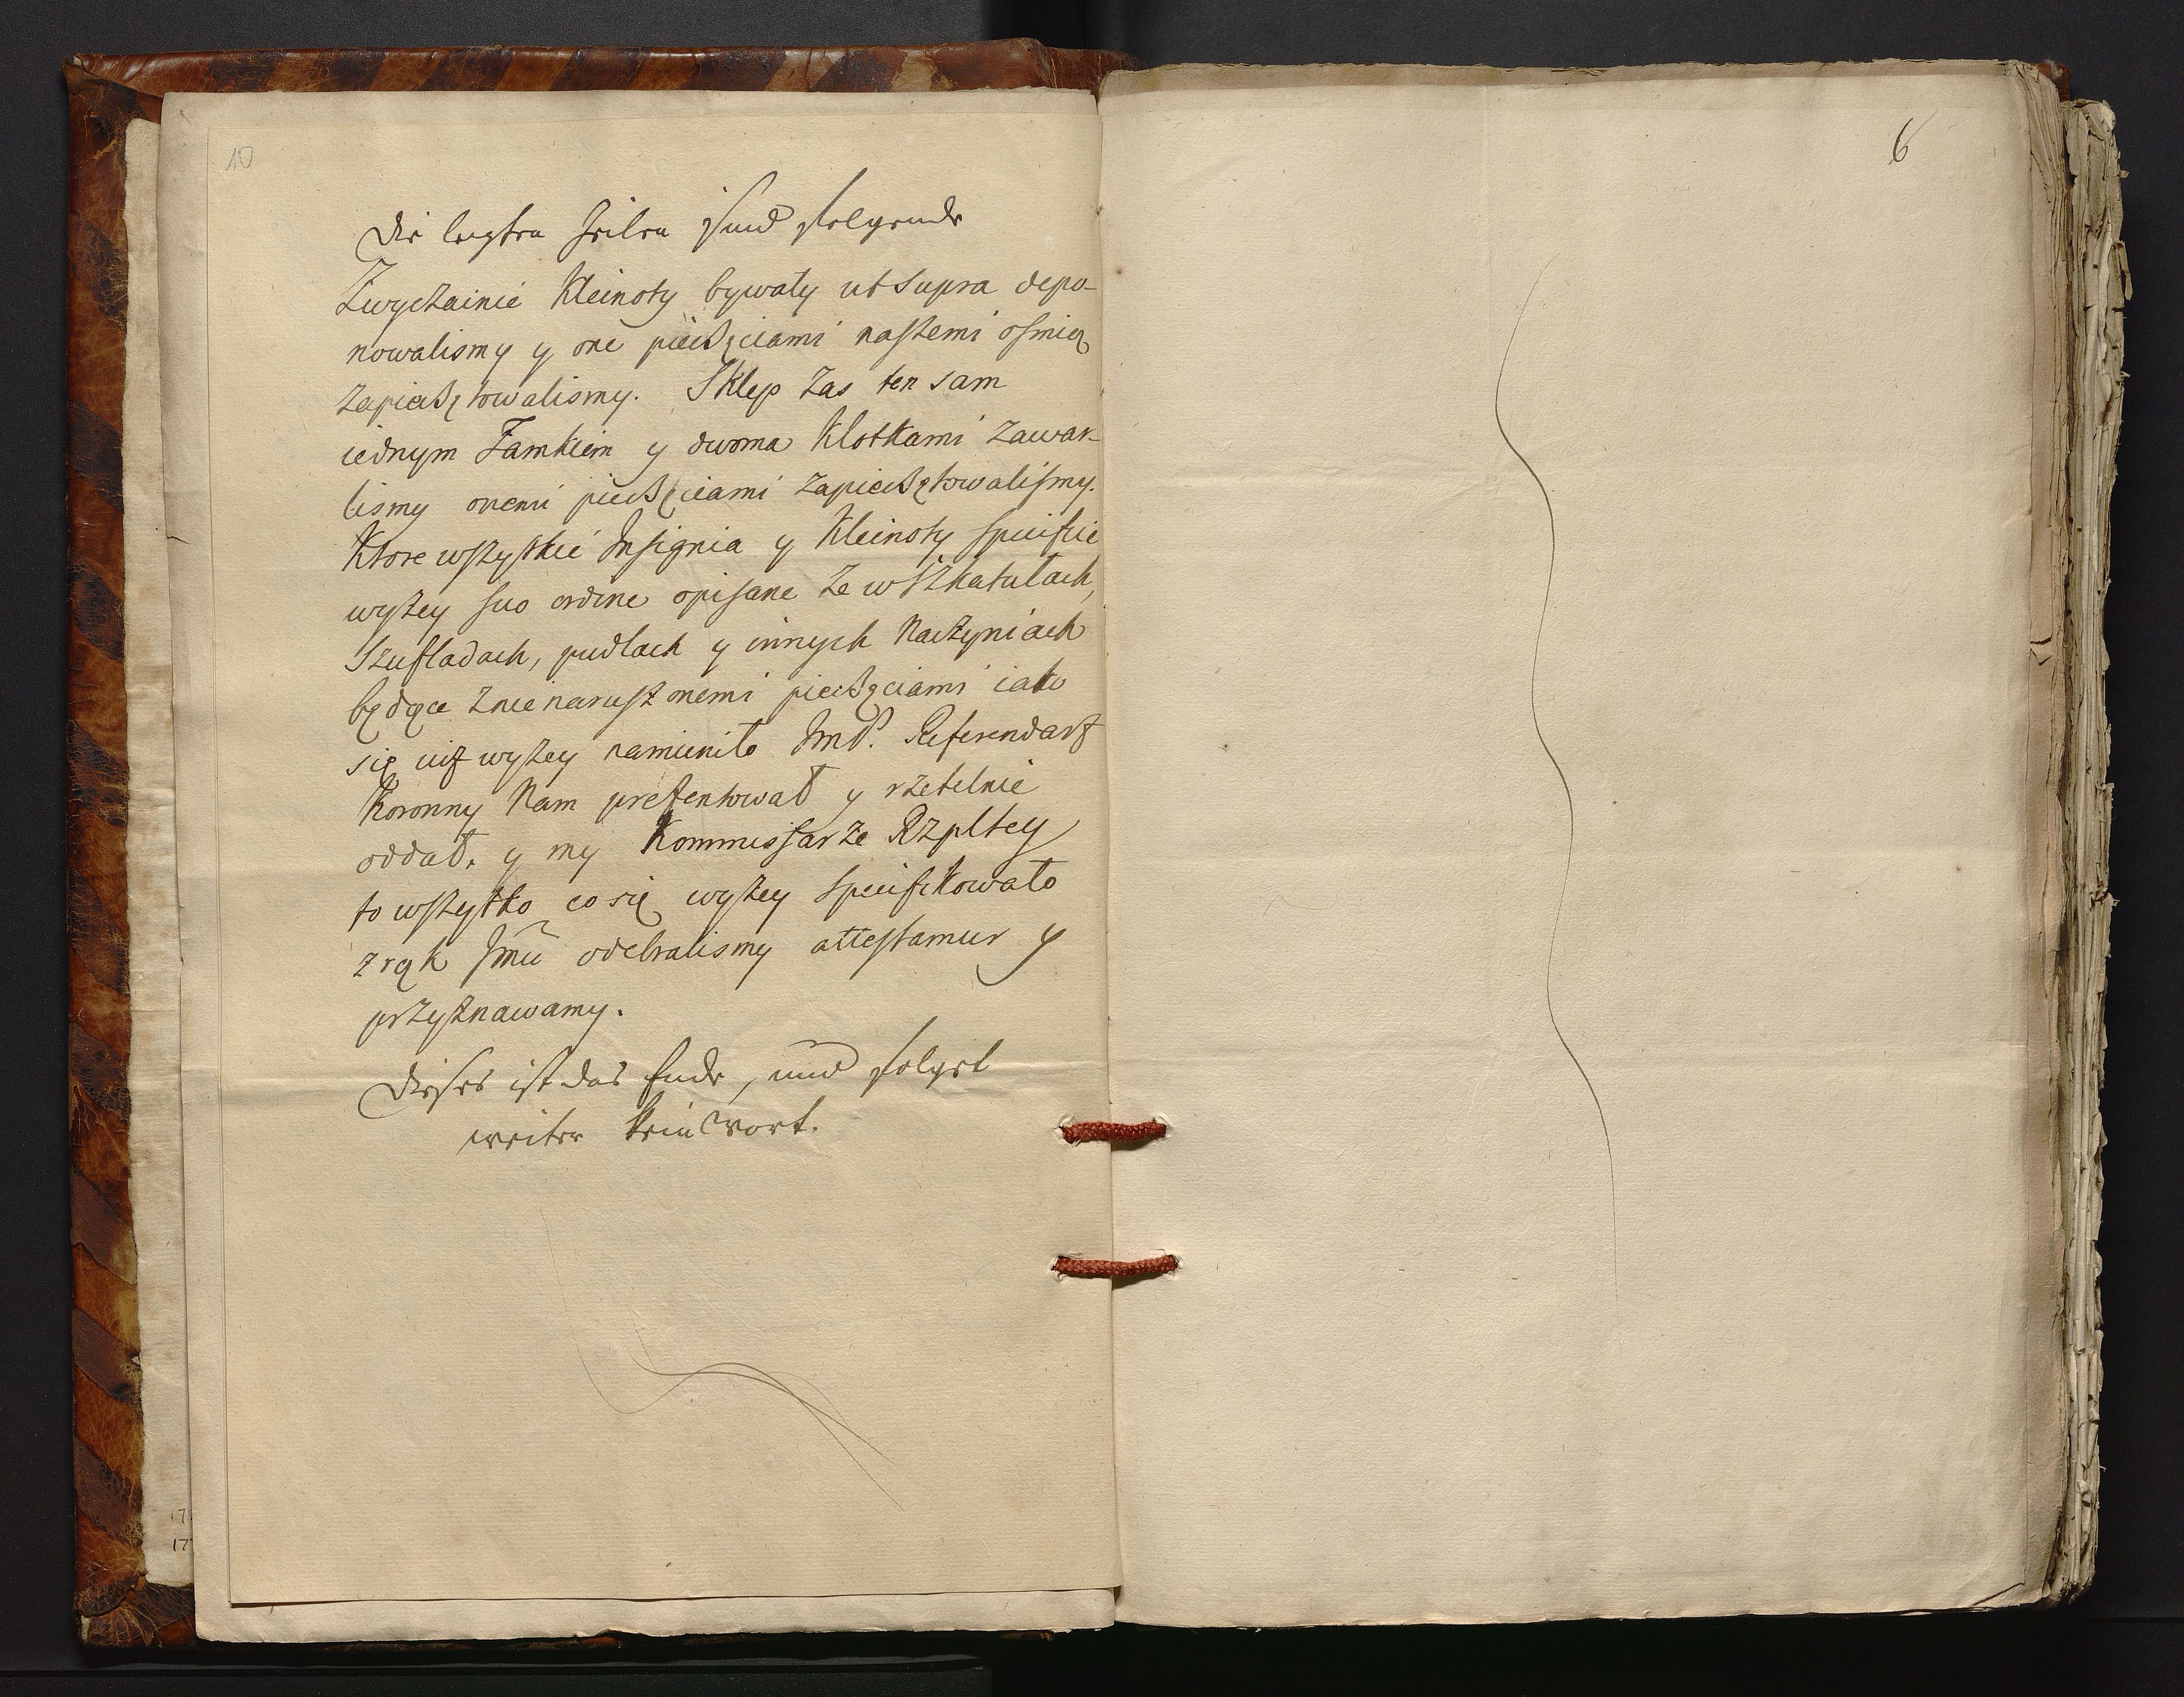 10
Die letzten Zeilen sind folgende
Zwyczainie Kleinoty bywały ut supra depo-
nowalismy y one pieczęciami naszemi osmią
zapieczętowalismy. Sklep zas ten sam
iednym Zamkiem y dwoma Klotkami zawar-
lismy onemi pieczęciami zapieczętowalismy.
Ktore wszystkie Insignia y Kleinoty specifice
wyżey suo ordine opisane ze w Szkatułach,
Szufladach, pudlach y innych Naczyniach
będące z nienaruszonemi pieczęciami iako
się iuż wyżey namieniło JmP. Referendarz
Koronny Nam prezentował y rzetelnie
oddał, y my Kommissarze Rzpltey
to wszytko co się wyżey specifikowało
z rąk Jmci odebralismy attestamur y
przyznawamy.
Dieses ist das Ende, und folgt
weiter kein Wort.
6
17
17